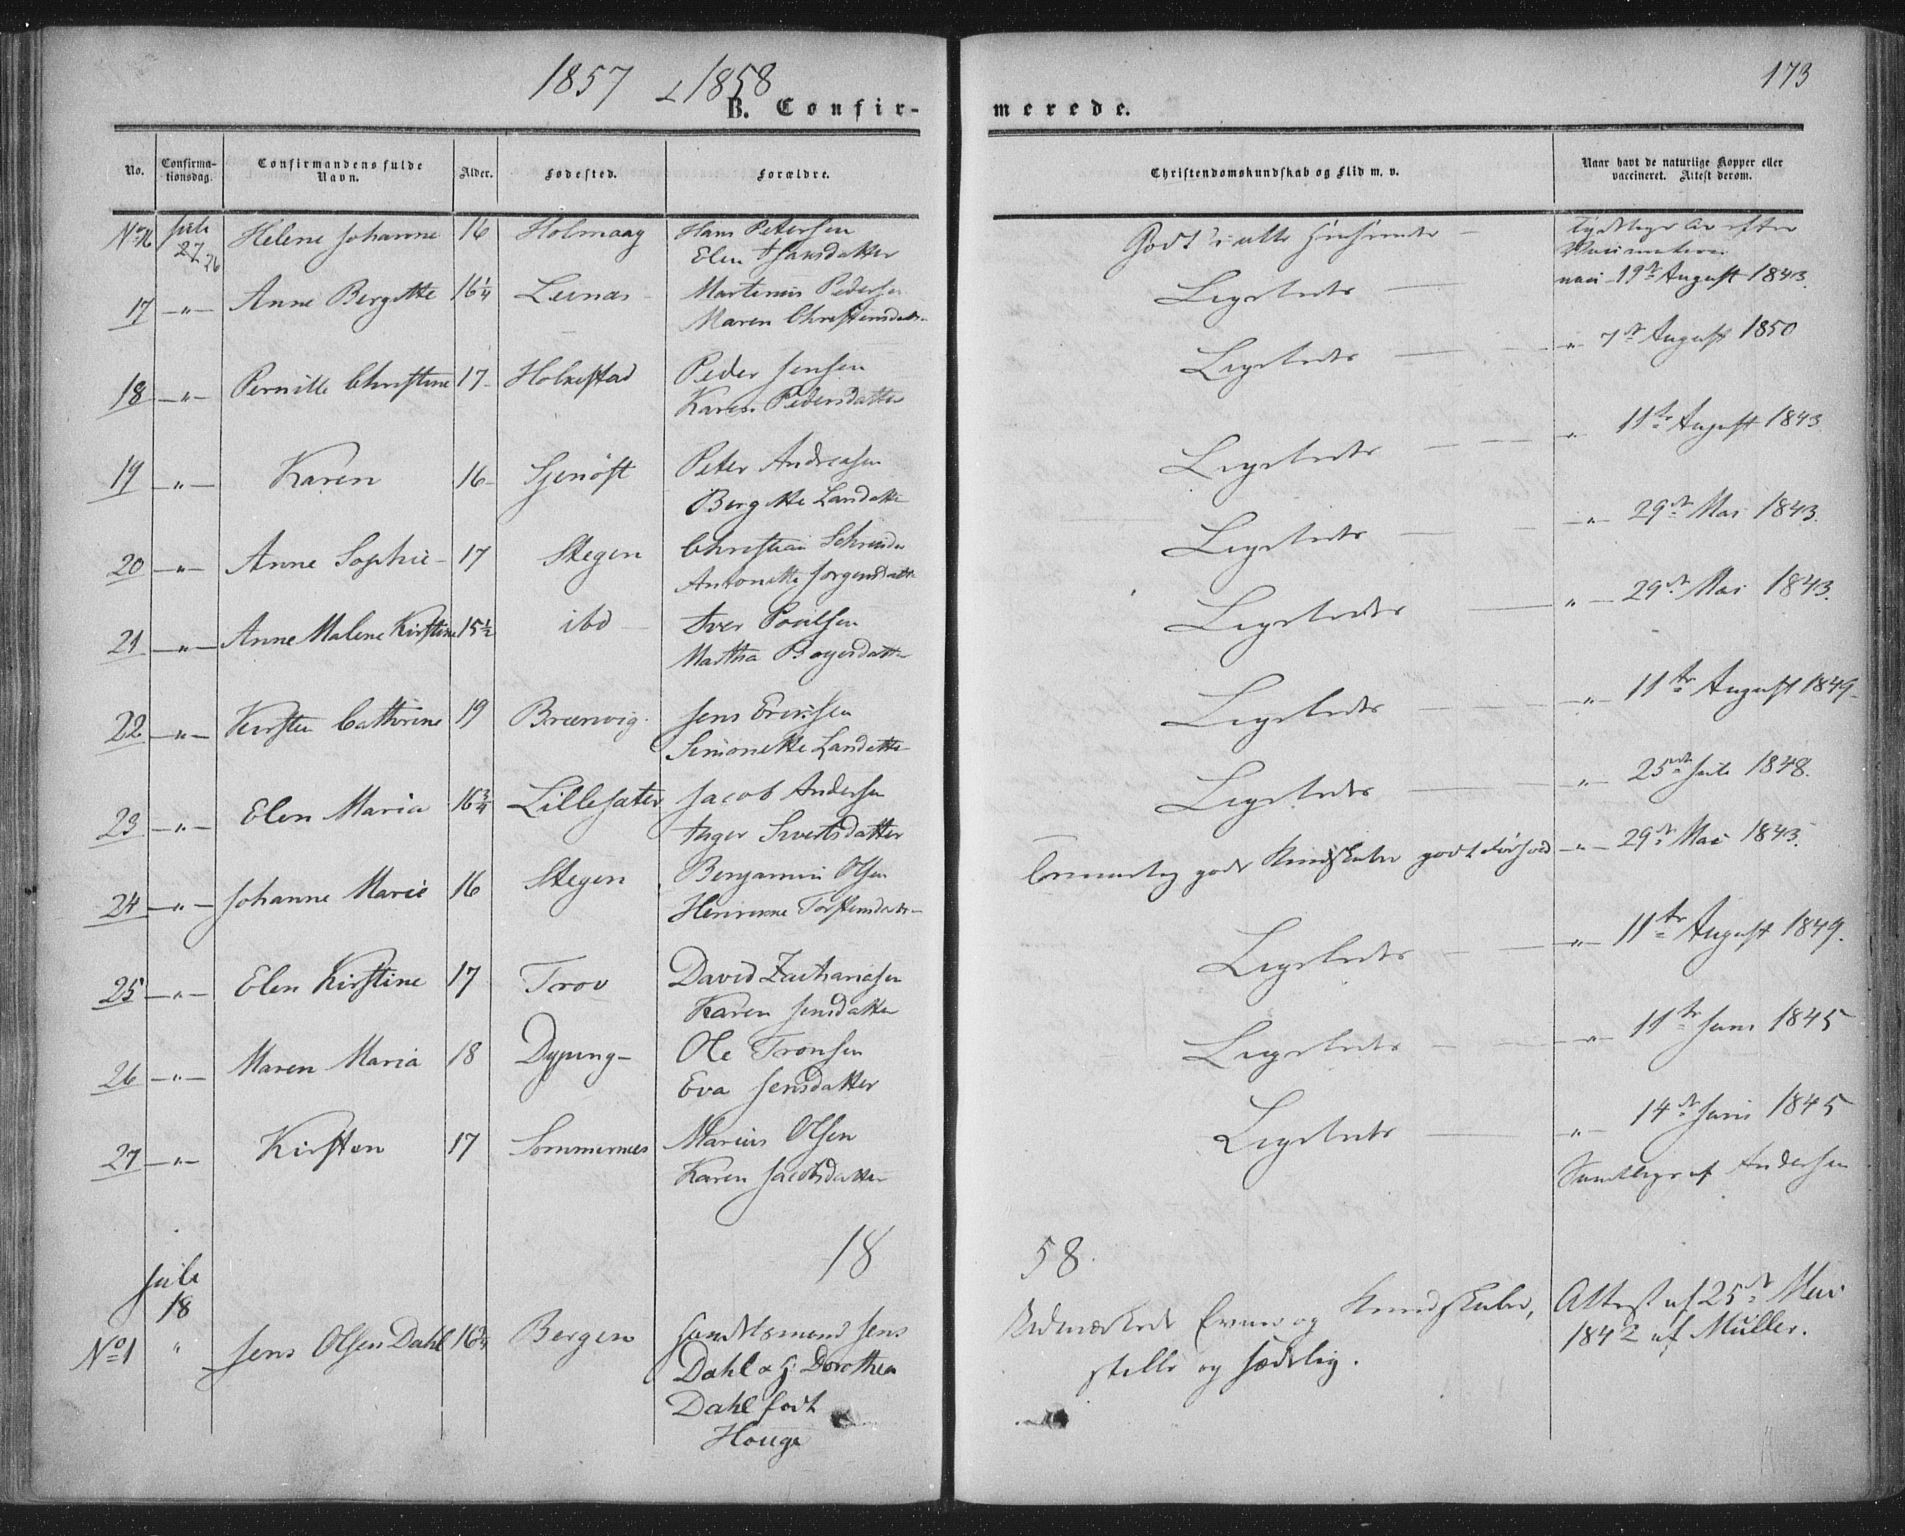 1857 & 1858
173
B. Confir-
merede.
No.
Confirma-
tionsdag.
Confirmandens fulde
Navn.
Alder.
Fødested.
Forældre.
Christendomskundskab og Flid m. v.
Naar havt de naturlige Kopper eller
vaccineret. Attest derom.
No 16 Juli 27 26 Helene Johanne 16 Holmaag Hans Petersen
Elen Hansdatter
Godt i alle Henseender
Tydelige Ar efter
Vaccinationen
17 —"— Anne Bergitte 16¼ Leenæs Martinus Pedersen
Maren Christensdatr
Ligeledes — vacc 19de August 1843.
18 —"— Pernille Christine 17 Holkestad Peder Jensen
Karen Pedersdatter
Ligeledes — " 7de August 1850
19 —"— Karen 16 Gjenøst Peter Andreasen
Bergitte Larsdatter
Ligeledes — " 11te August 1843
20 —"— Anne Sophie 17 Stegen Christian Schrøder
Antonette Jørgensdatter
Ligeledes — " 29de Mai 1843.
21 —"— Anne Malene Kirstine 15½ ibd Iver Poulsen
Martha Boyesdatter
Ligeledes — " 29de Mai 1843.
22 —"— Kirsten Cathrine 19 Brænvig Jens Ericksen
Simonette Larsdatter
Ligeledes — " 11te August 1849
23 —"— Elen Maria 16¾ Lillesæter Jacob Andersen
Inger Sivertsdatter
Ligeledes — " 25de Juli 1848.
24 —"— Johanne Marie 16 Stegen Benjamin Olsen
Henricine Torstensdatr
gode Kundskaber godt Forhold — " 29de Mai 1843.
25 —"— Elen Kirstine 17 Trov David Zachariasen
Karen Jensdatter
Ligeledes — " 11te August 1849.
26 —"— Maren Maria 18 Dyping Ole Tronsen
Eva Jensdatter
Ligeledes — " 11te Juni 1845
27 —"— Kirsten 17 Sommernes Marius Olsen
Karen Jacobsdatter
Ligeledes — " 14de Juni 1845
Samtlige af Andersen
18
58.
Juli
18
No 1 " Jens Olsen Dahl 16¾ Bergen Handelsmand Jens
Dahl og H. Dorothea
Dahl født
Houge
Udmærkede Evner og Kundskaber,
stille og sædelig.
Attest af 25de Mai
1842 af Müller.